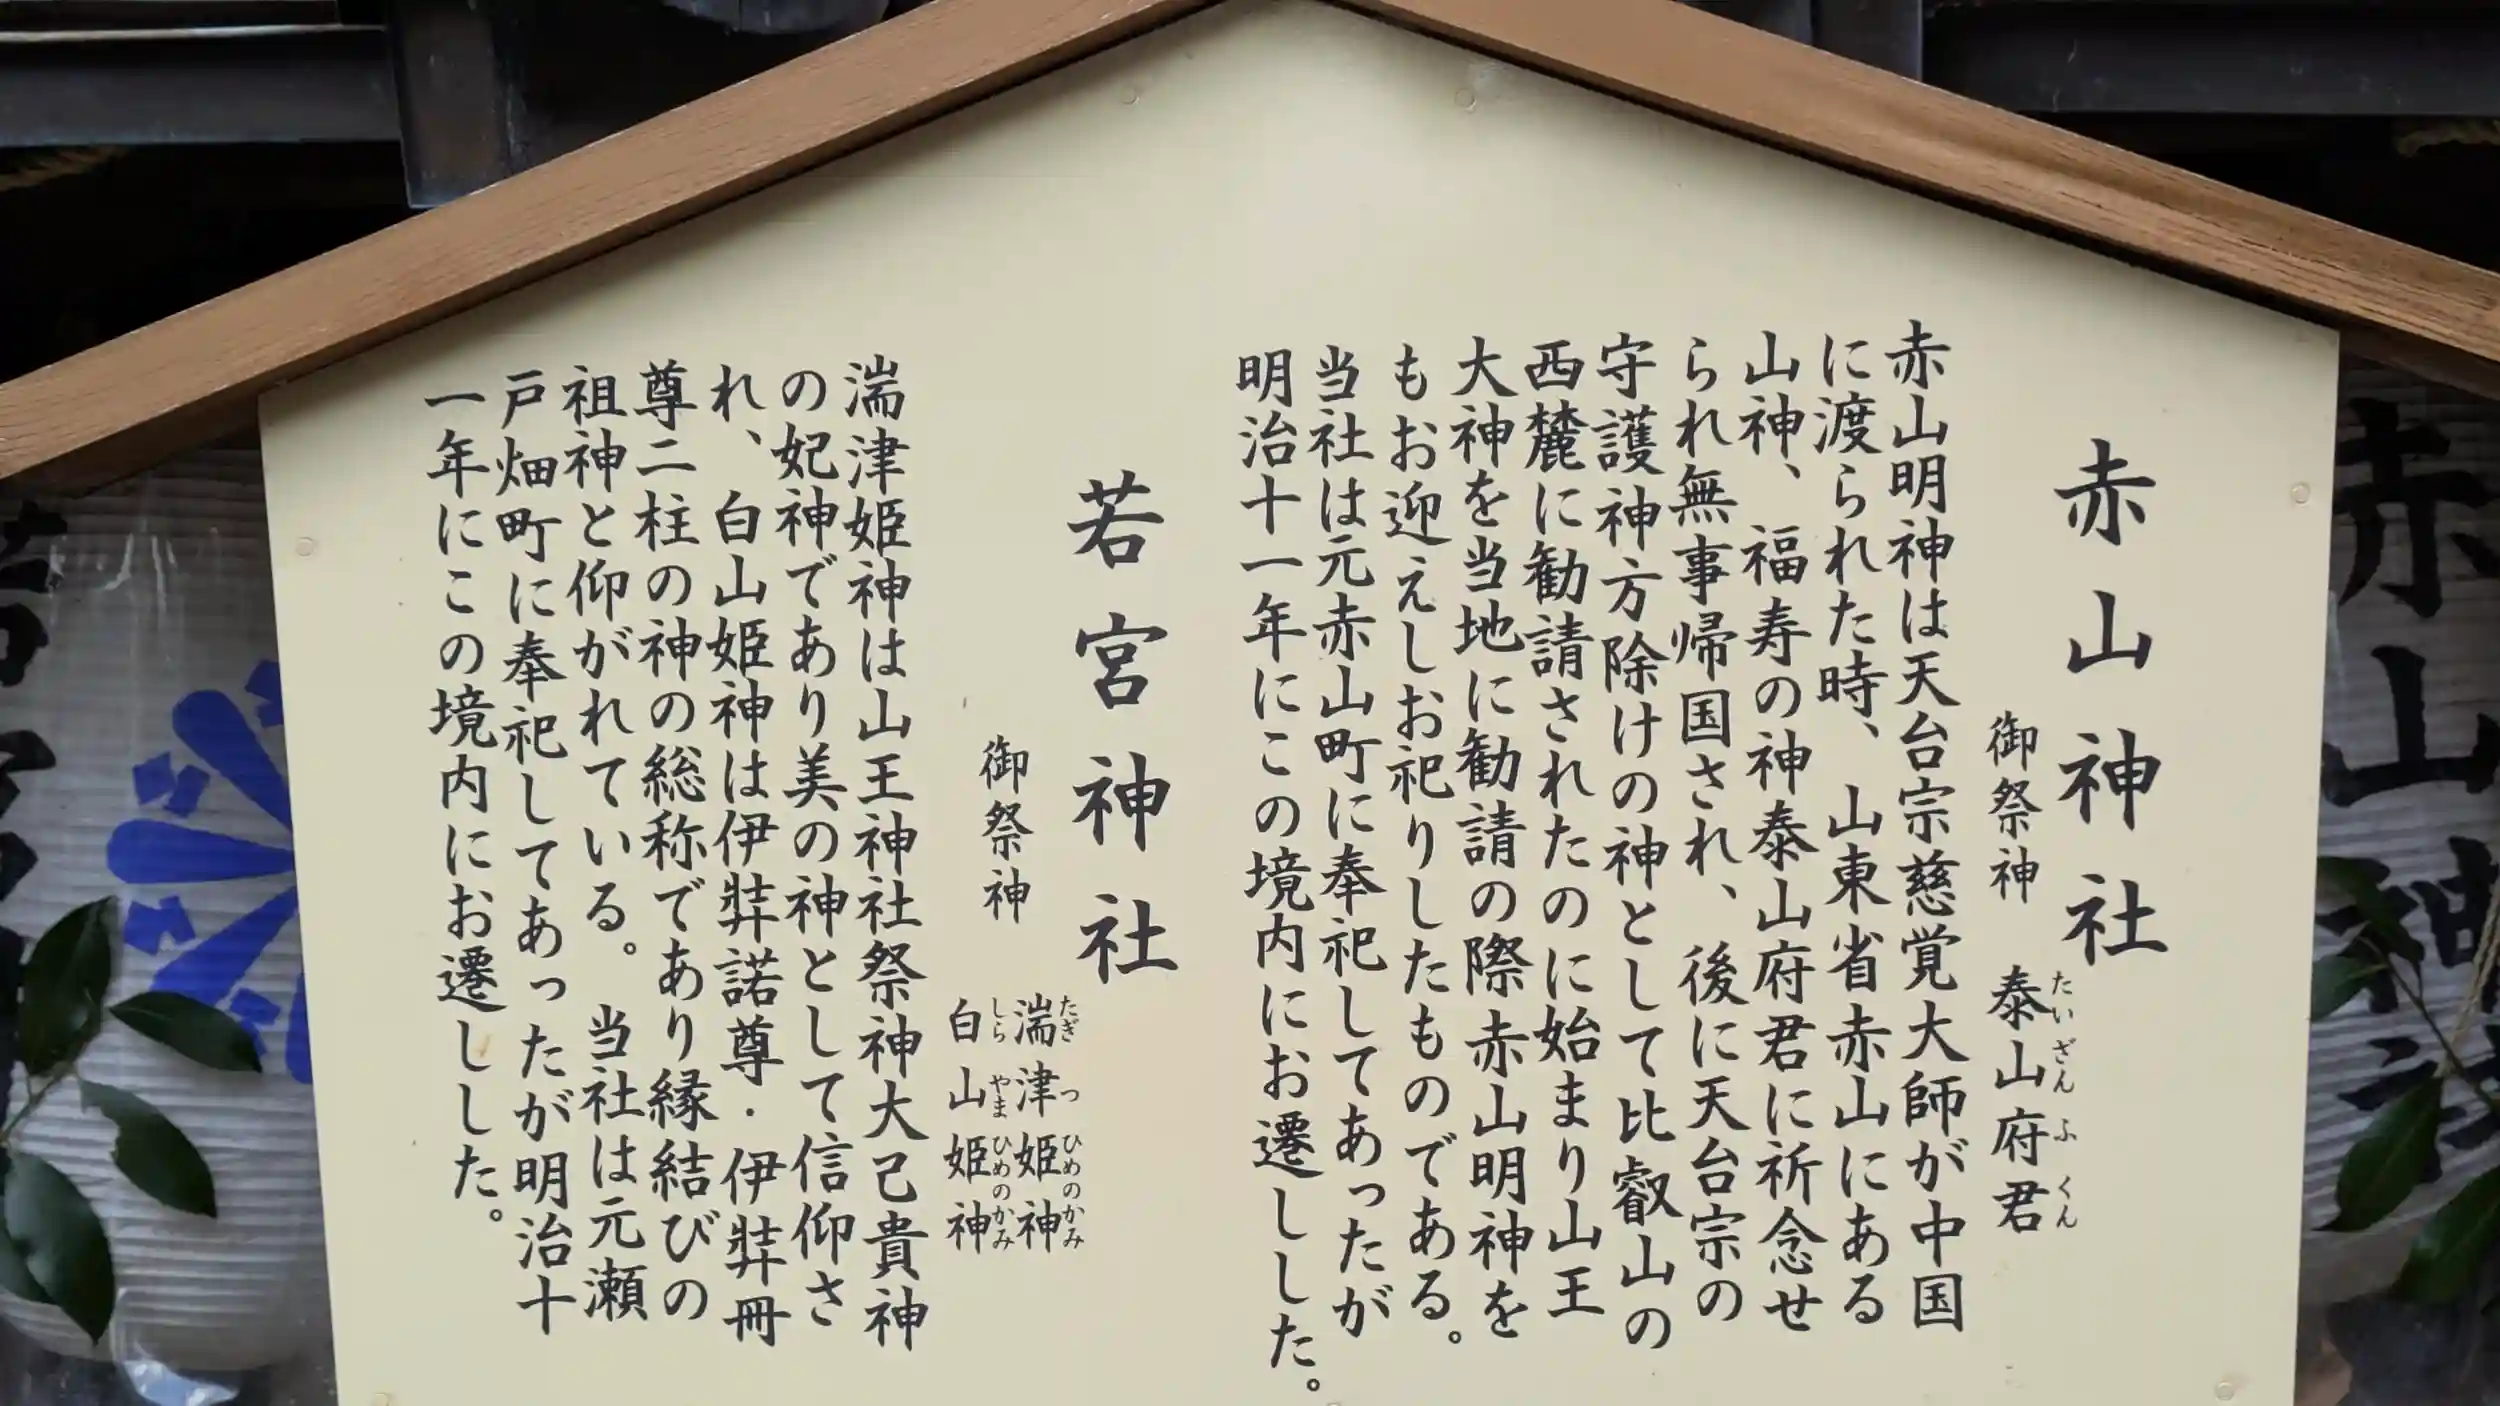 赤山神社
御祭神 泰山府君
たいざんふくん
赤山明神は天台宗慈覚大師が中国
に渡られた時、山東省赤山にある
山神、福寿の神泰山府君に祈念せ
られ無事帰国され、後に天台宗の
守護神方除けの神として比叡山の
西麓に勧請されたのに始まり山王
大神を当地に勧請の際赤山明神を
もお迎えしお祀りしたものである。
当社は元赤山町に奉祀してあったが
明治十一年にこの境内にお遷しした。
若宮神社
御祭神
湍津姫神
たぎつひめのかみ
白山姫神
しらやまひめのかみ
湍津姫神は山王神社祭神大己貴神
の妃神であり美の神として信仰さ
れ、白山姫神は伊弉諾尊・伊弉冊
尊二柱の神の総称であり縁結びの
祖神と仰がれている。当社は元瀬
戸畑町に奉祀してあったが明治十
一年にこの境内にお遷しした。
赤山神